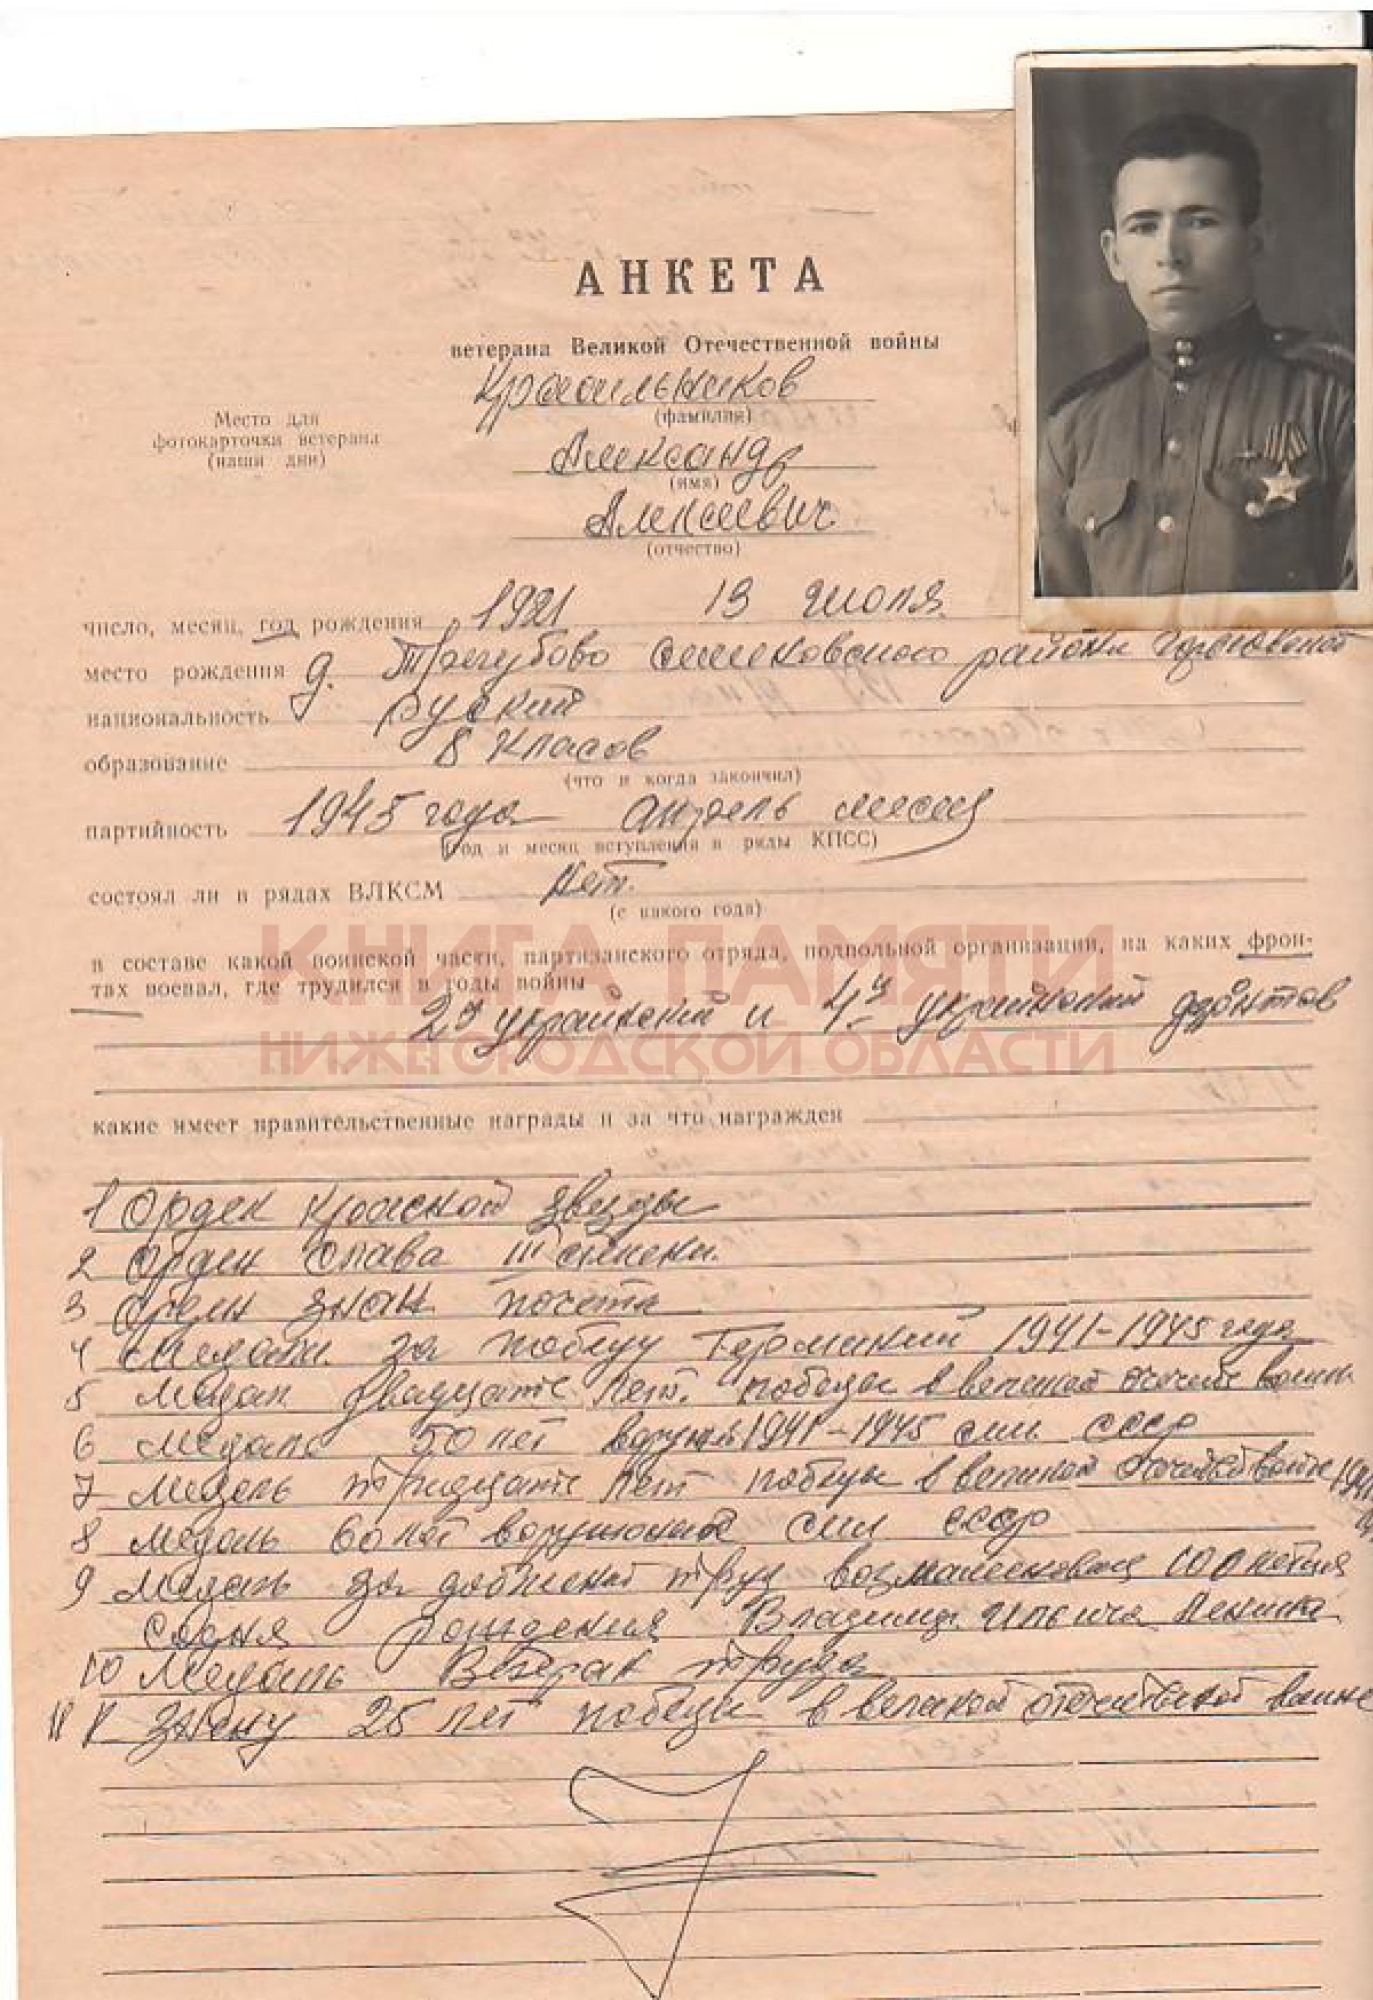 АНКЕТА
ветерана Великой Отечественной войны
Красильников
(фамилия)
Место для
фотокарточки ветерана
(наши дни)
Александр
(имя)
Алексеевич
(отчество)
число, месяц, год рождения 1921 13 июля
место рождения д. Трегубово семеновского района Горьковской
национальность руский
образование 8 класов
(что и когда закончил)
партийность 1945 года апрель месяц
(год и месяц вступления в ряды КПСС)
состоял ли в рядах ВЛКСМ Нет.
(с какого года)
КНИГА ПАМЯТИ
в составе какой воинской части, партизанского отряда, подпольной организации, на каких фрон-
тах воевал, где трудился в годы войны
2й украинский и 4й украинский фронтов
НИЖЕГОРОДСКОЙ ОБЛАСТИ
какие имеет правительственные награды и за что награжден
1 Орден Красной звезды
2 Орден Слава III степени.
3 Орден знак почета
4 Медаль за победу Германией 1941-1945 года
5 Медаль двадцать лет. победы в великой войне
6 Медаль 50 лет 1941-1945 сил СССР
7 Медаль тридцать лет победы в великой войне
8 Медаль 60 лет вооружоных сил СССР
9 Медаль за доблесный труд 100 летия
содня рождения Владимира Ильича Ленина
10 Медаль Ветеран труда
11 К знаку 25 лет победы в великой отечественой войне